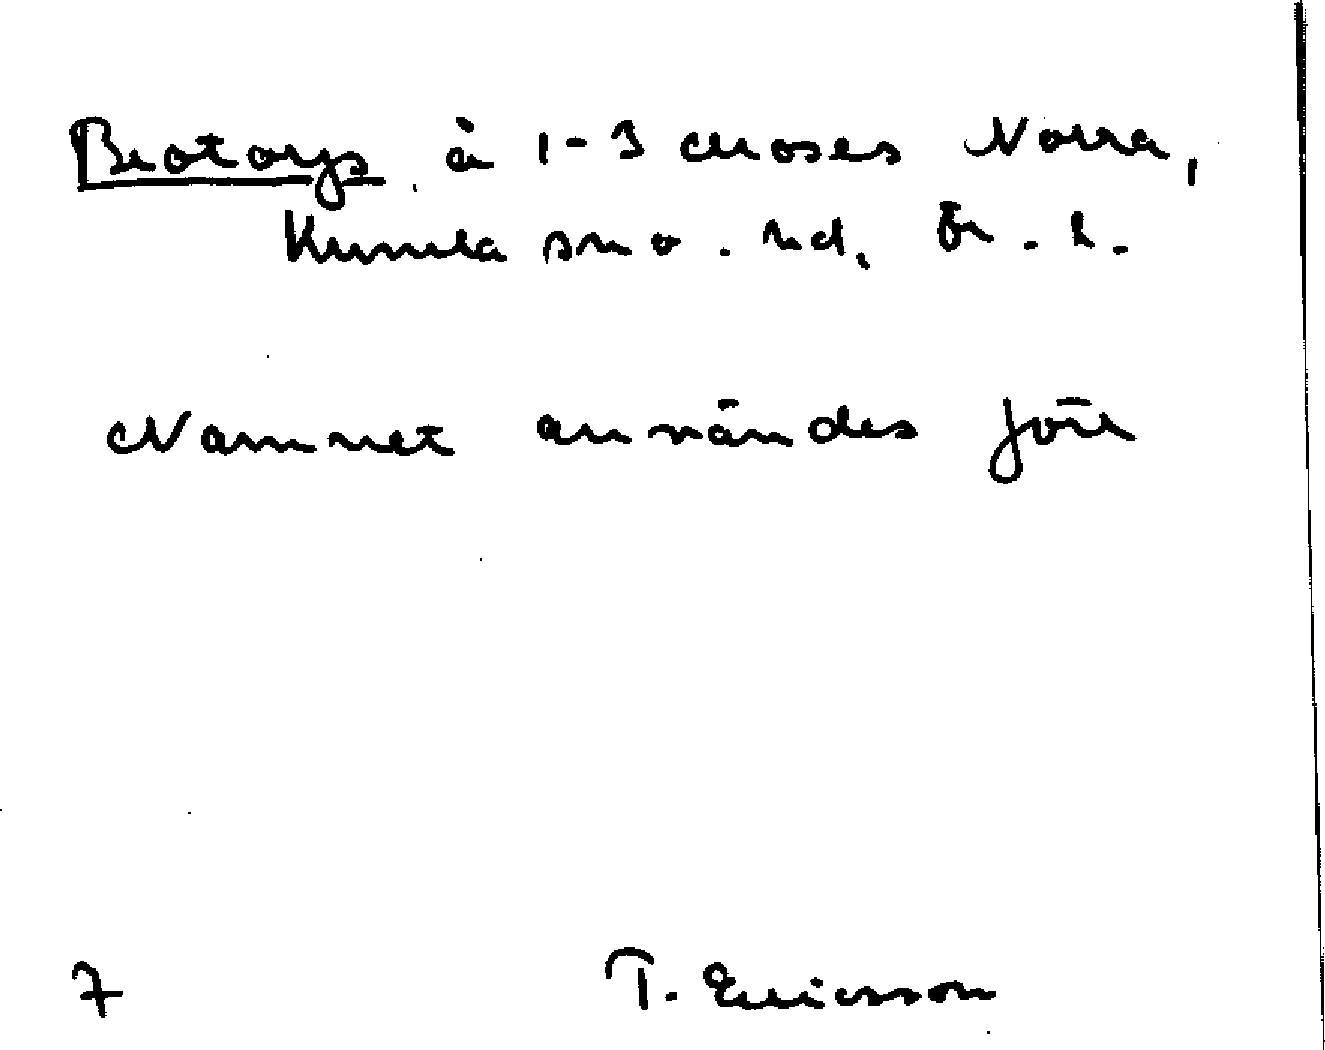 Brotorp å 1-3 Åmoses Norra,
Kumla sn o. hd, Ör. l.
Namnet användes förr
7 T. Ericsson